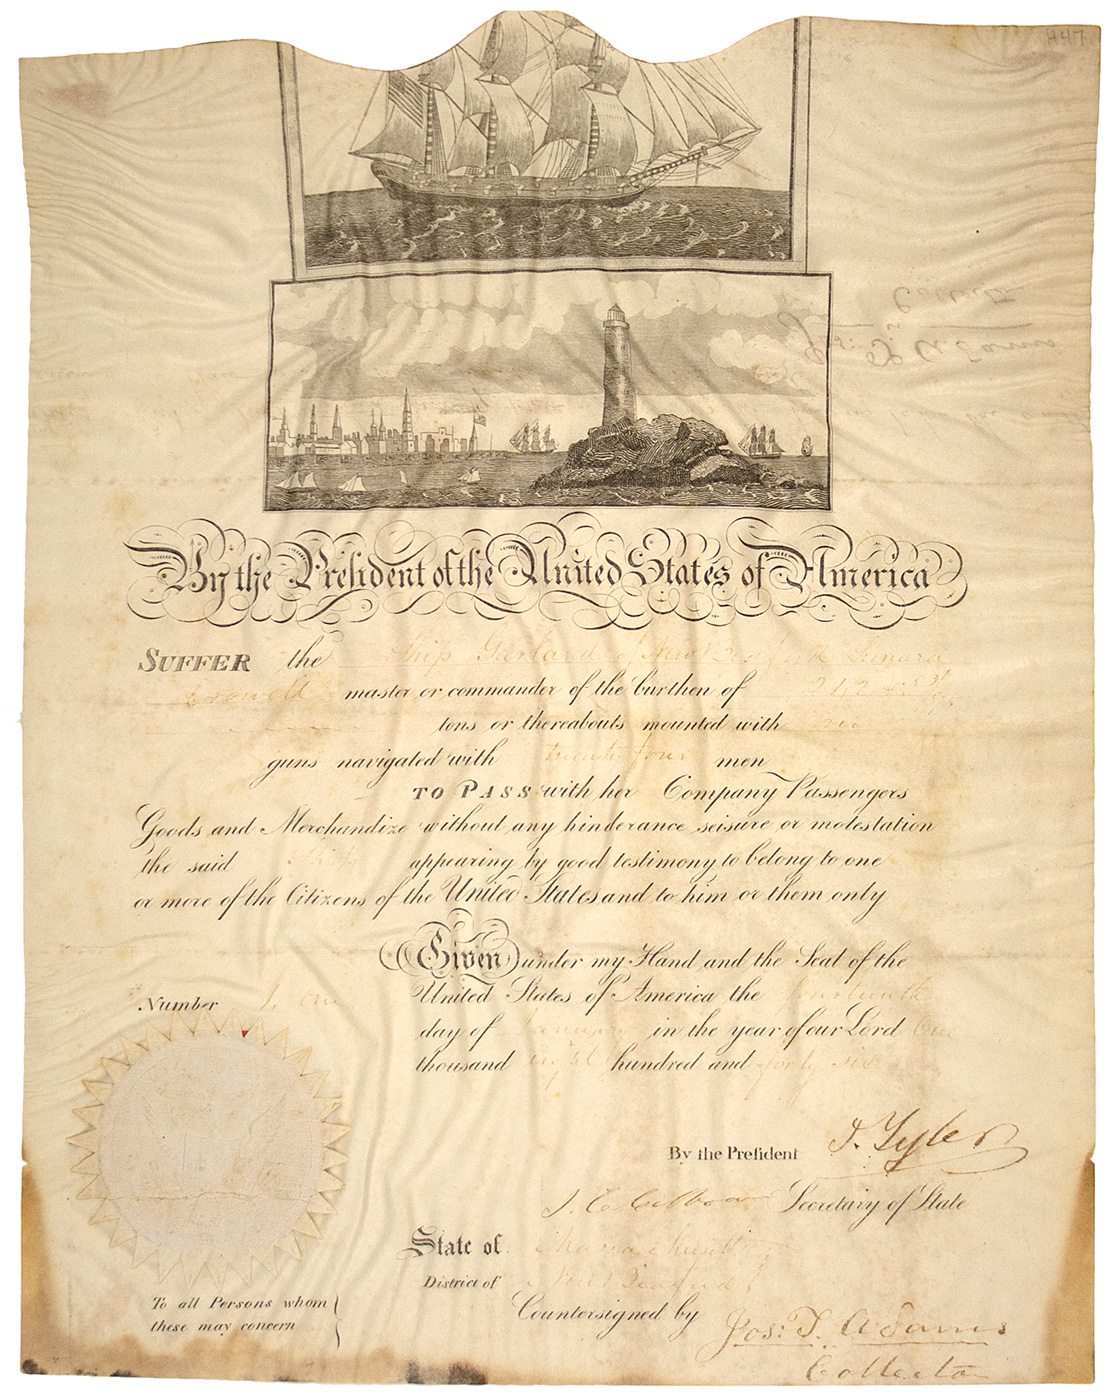 H47
By the President of the United States of America
SUFFER the Ship Garland of New Bedford
master or commander of the burthen of
tons or thereabouts mounted with
guns navigated with twenty four men
TO PASS with her Company Passengers
Goods and Merchandize without any hinderance seisure or molestation
the said Ship appearing by good testimony to belong to one
or more of the Citizens of the United States and to him or them only
Given under my Hand and the Seal of the
Number 1. One
United States of America the fourteenth
day of January in the year of our Lord One
thousand eight hundred and forty six
By the President J. Tyler
J. C. Calhoun Secretary of State
State of Massachusetts
District of New Bedford
To all Persons whom
these may concern
Countersigned by Jos: T. Adams
Collector